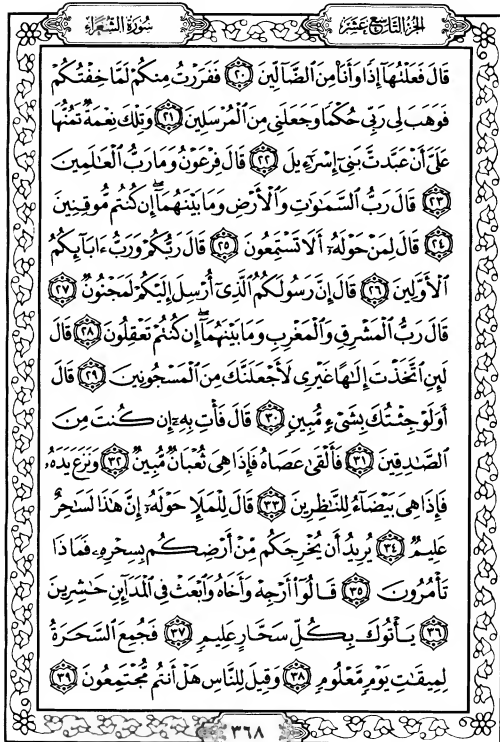 سُورَةُ الشُّعَرَاءِ
الجُزْءُ التَّاسِعُ عَشَرَ
قَالَ فَعَلْتُهَآ إِذًا وَأَنَا۠ مِنَ ٱلضَّآلِّينَ ﴿٢٠﴾ فَفَرَرْتُ مِنكُمْ لَمَّا خِفْتُكُمْ
فَوَهَبَ لِى رَبِّى حُكْمًا وَجَعَلَنِى مِنَ ٱلْمُرْسَلِينَ ﴿٢١﴾ وَتِلْكَ نِعْمَةٌ تَمُنُّهَا
عَلَىَّ أَنْ عَبَّدتَّ بَنِىٓ إِسْرَٰٓءِيلَ ﴿٢٢﴾ قَالَ فِرْعَوْنُ وَمَا رَبُّ ٱلْعَٰلَمِينَ
﴿٢٣﴾ قَالَ رَبُّ ٱلسَّمَٰوَٰتِ وَٱلْأَرْضِ وَمَا بَيْنَهُمَآ إِن كُنتُم مُّوقِنِينَ
﴿٢٤﴾ قَالَ لِمَنْ حَوْلَهُۥٓ أَلَا تَسْتَمِعُونَ ﴿٢٥﴾ قَالَ رَبُّكُمْ وَرَبُّ ءَابَآئِكُمُ
ٱلْأَوَّلِينَ ﴿٢٦﴾ قَالَ إِنَّ رَسُولَكُمُ ٱلَّذِىٓ أُرْسِلَ إِلَيْكُمْ لَمَجْنُونٌ ﴿٢٧﴾
قَالَ رَبُّ ٱلْمَشْرِقِ وَٱلْمَغْرِبِ وَمَا بَيْنَهُمَآ إِن كُنتُمْ تَعْقِلُونَ ﴿٢٨﴾ قَالَ
لَئِنِ ٱتَّخَذْتَ إِلَٰهًا غَيْرِى لَأَجْعَلَنَّكَ مِنَ ٱلْمَسْجُونِينَ ﴿٢٩﴾ قَالَ
أَوَلَوْ جِئْتُكَ بِشَىْءٍ مُّبِينٍ ﴿٣٠﴾ قَالَ فَأْتِ بِهِۦٓ إِن كُنتَ مِنَ
ٱلصَّٰدِقِينَ ﴿٣١﴾ فَأَلْقَىٰ عَصَاهُ فَإِذَا هِىَ ثُعْبَانٌ مُّبِينٌ ﴿٣٢﴾ وَنَزَعَ يَدَهُۥ
فَإِذَا هِىَ بَيْضَآءُ لِلنَّٰظِرِينَ ﴿٣٣﴾ قَالَ لِلْمَلَإِ حَوْلَهُۥٓ إِنَّ هَٰذَا لَسَٰحِرٌ
عَلِيمٌ ﴿٣٤﴾ يُرِيدُ أَن يُخْرِجَكُم مِّنْ أَرْضِكُم بِسِحْرِهِۦ فَمَاذَا
تَأْمُرُونَ ﴿٣٥﴾ قَالُوٓا۟ أَرْجِهْ وَأَخَاهُ وَٱبْعَثْ فِى ٱلْمَدَآئِنِ حَٰشِرِينَ
﴿٣٦﴾ يَأْتُوكَ بِكُلِّ سَحَّارٍ عَلِيمٍ ﴿٣٧﴾ فَجُمِعَ ٱلسَّحَرَةُ
لِمِيقَٰتِ يَوْمٍ مَّعْلُومٍ ﴿٣٨﴾ وَقِيلَ لِلنَّاسِ هَلْ أَنتُم مُّجْتَمِعُونَ ﴿٣٩﴾
٣٦٨